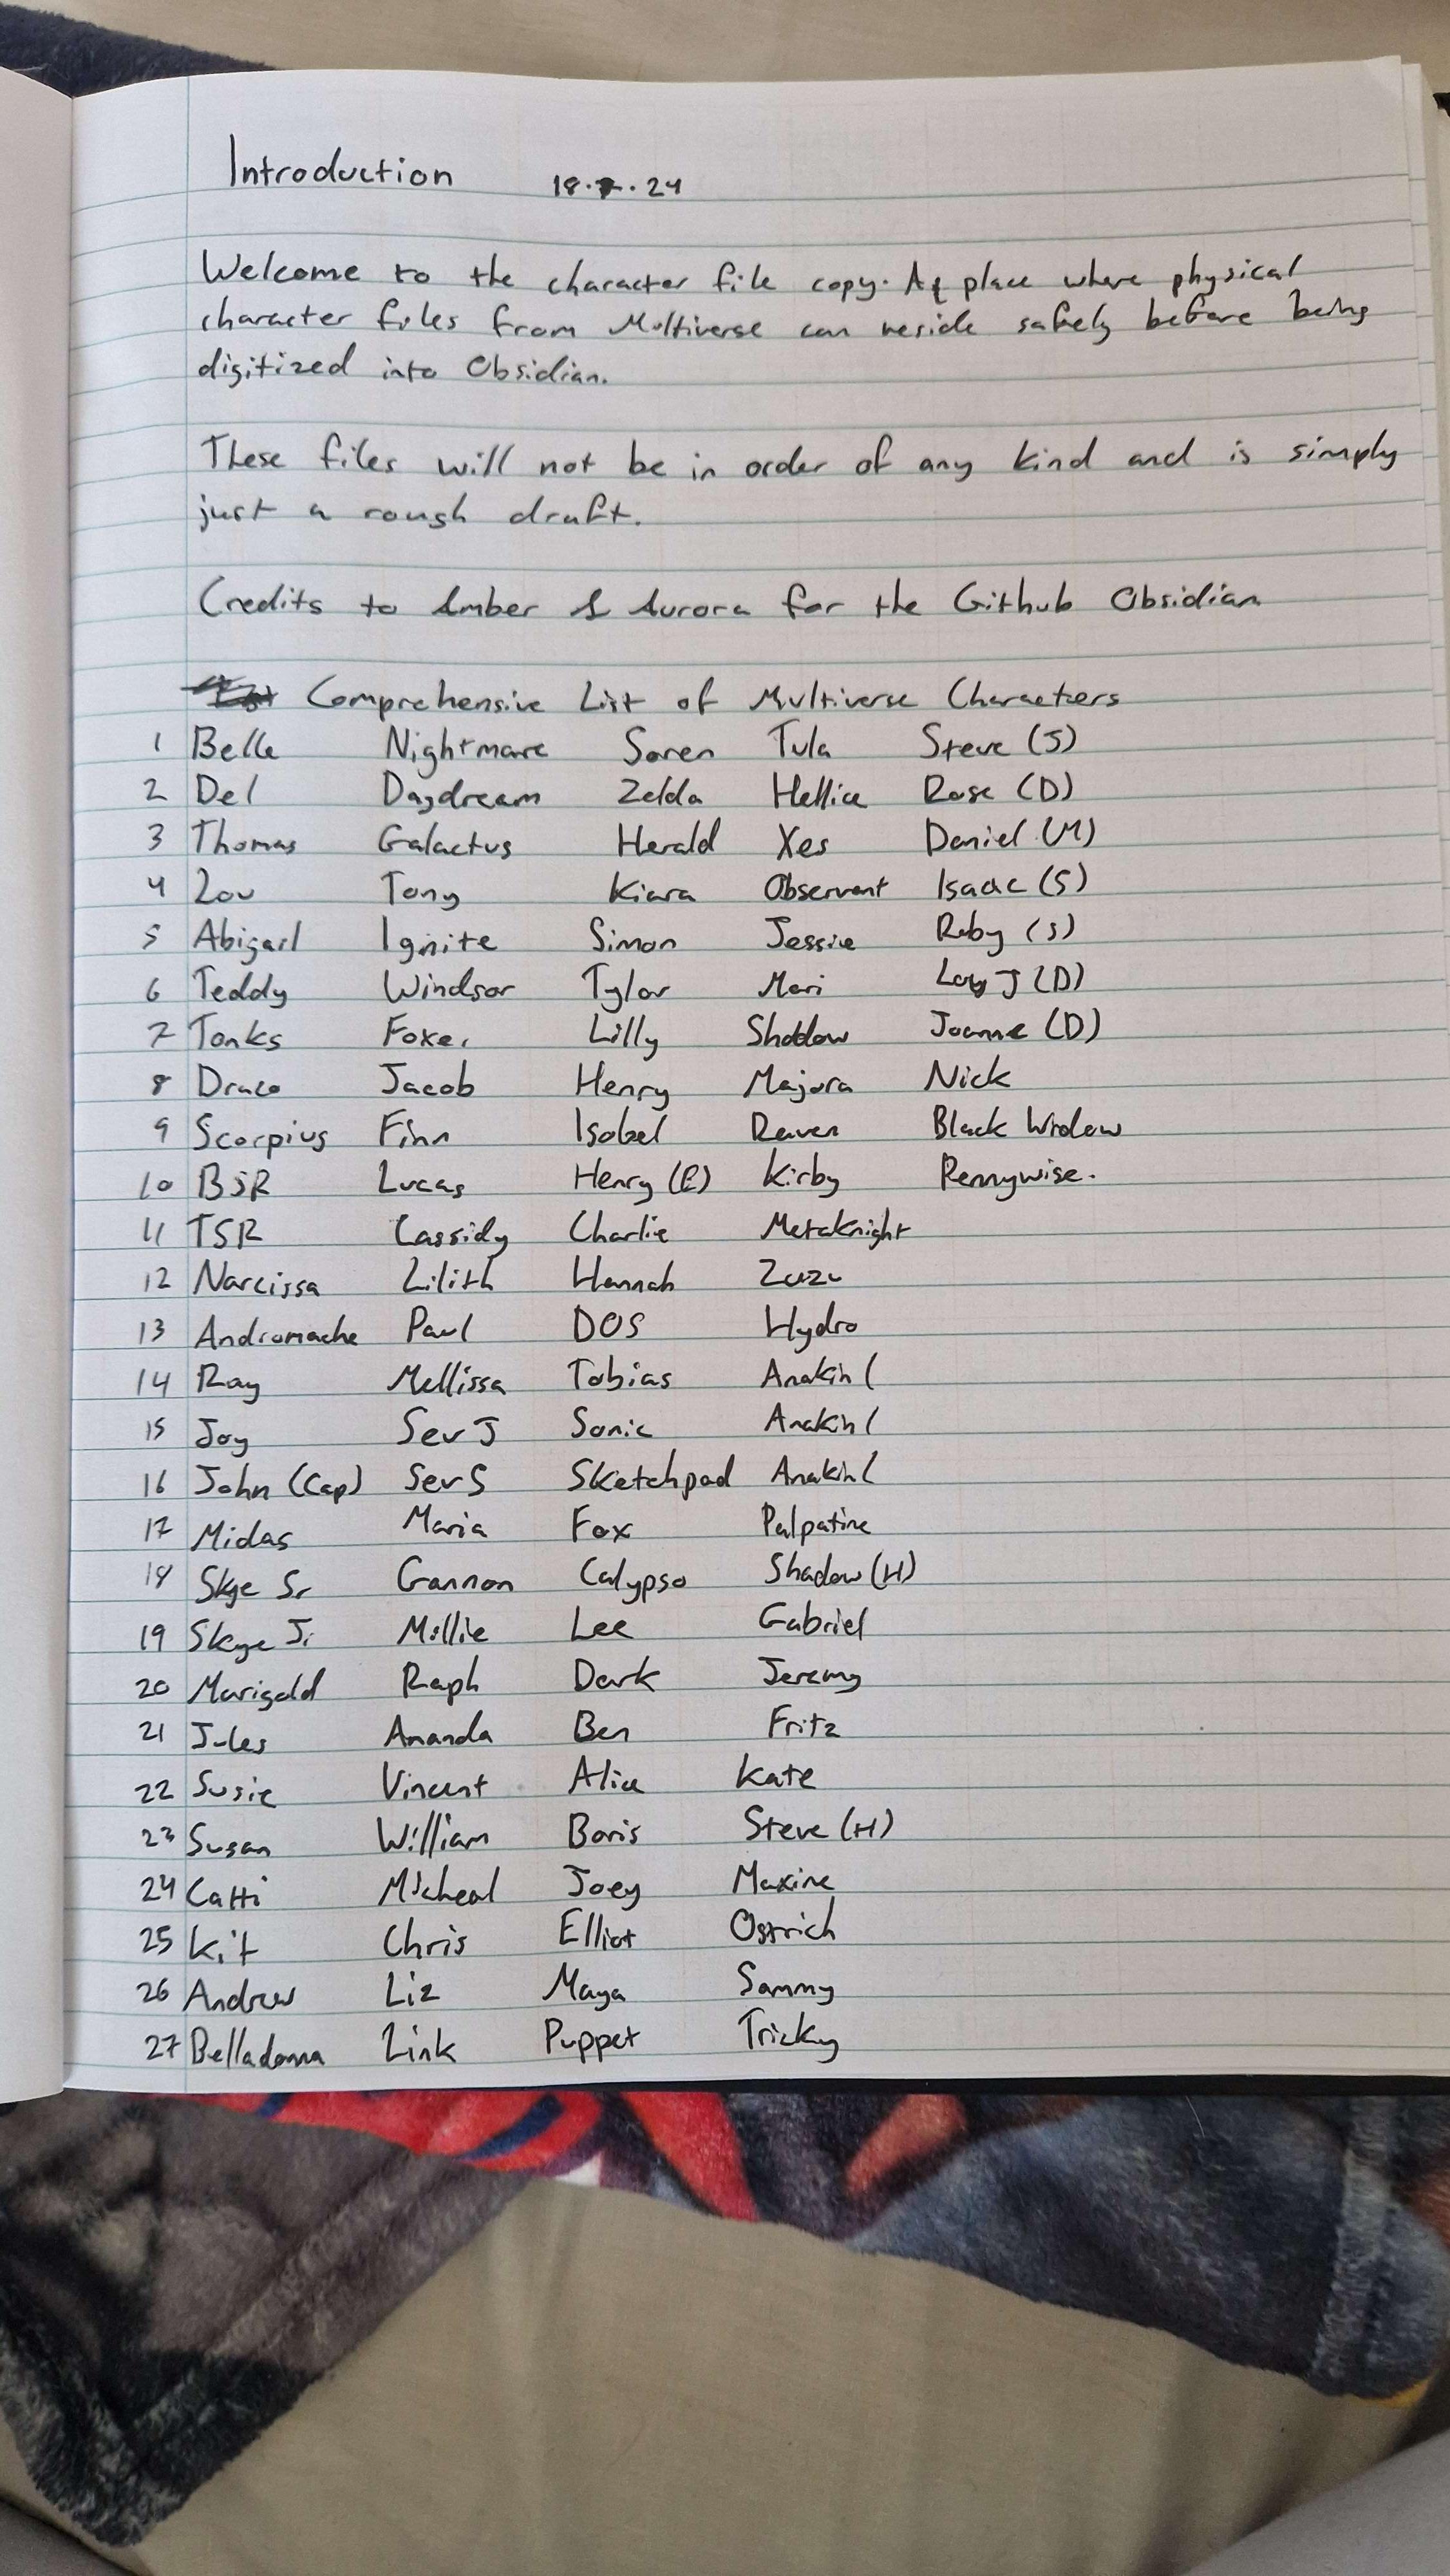 Introduction 18.7.24
Welcome to the character file copy. A place where physical
character files from Multiverse can reside safely before being
digitized into Obsidian.
These files will not be in order of any kind and is simply
just a rough draft.
Credits to Amber & Aurora for the Github Obsidian
Comprehensive List of Multiverse Characters
1 Belle Nightmare Soren Tula Steve (J)
2 Del Daydream Zelda Hellice Rose (D)
3 Thomas Galactus Herald Xes Daniel (M)
4 Lou Tony Kiara Observant Isaac (S)
5 Abigail Ignite Simon Jessie Ruby (S)
6 Teddy Windsor Tylor Mari J (D)
7 Tonks Foxer Lilly Shaddow Joanne (D)
8 Draco Jacob Henry Majora Nick
9 Scorpius Finn Isobel Raven Black Widow
10 BSR Lucas Henry (E) Kirby Pennywise.
11 TSR Cassidy Charlie Metaknight
12 Narcissa Lilith Hannah Zuzu
13 Andromache Paul DOS Hydro
14 Ray Mellissa Tobias Anakin (
15 Joy Sev J Sonic Anakin (
16 John (Cap) Sev S Sketchpad Anakin (
17 Midas Maria Fox Palpatine
18 Skye Sr Gannon Calypso Shadow (H)
19 Skye Jr Millie Lee Gabriel
20 Marigold Raph Dark Jeremy
21 Jules Ananda Ben Fritz
22 Susie Vincent Alice Kate
23 Susan William Boris Steve (H)
24 Catti Micheal Joey Maxine
25 Kit Chris Elliot Ostrich
26 Andrew Liz Maya Sammy
27 Belladonna Link Puppet Tricky